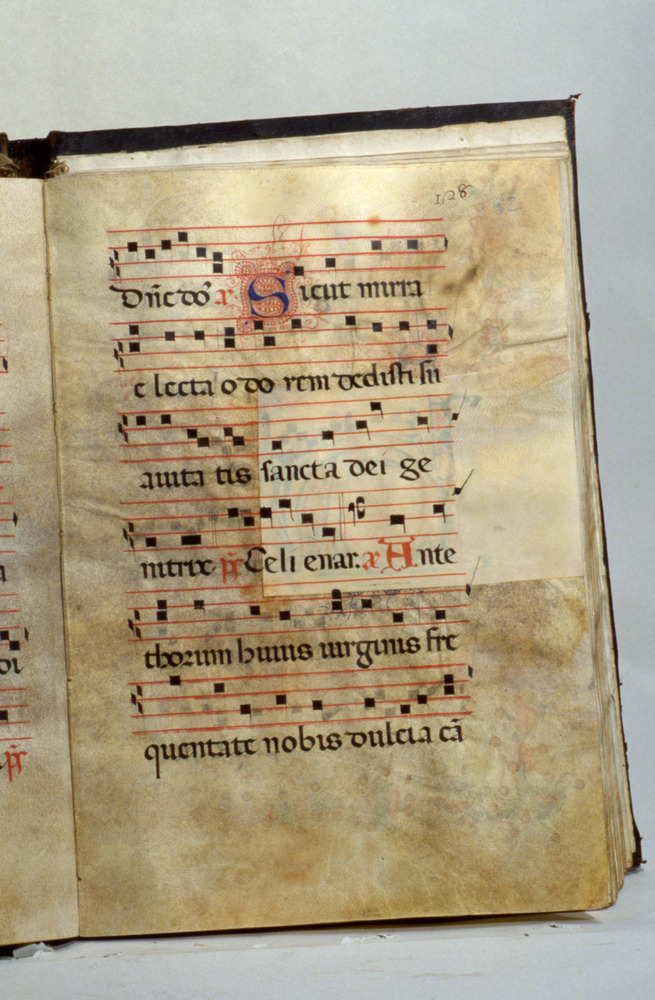 128
Dñe dõ a Sicut mirra
electa odorem dedisti su
auita tis sancta dei ge
nitrix p̃s Celi enar. a Ante
thorum huius uirginis fre
quentate nobis dulcia cã
di
p̃s